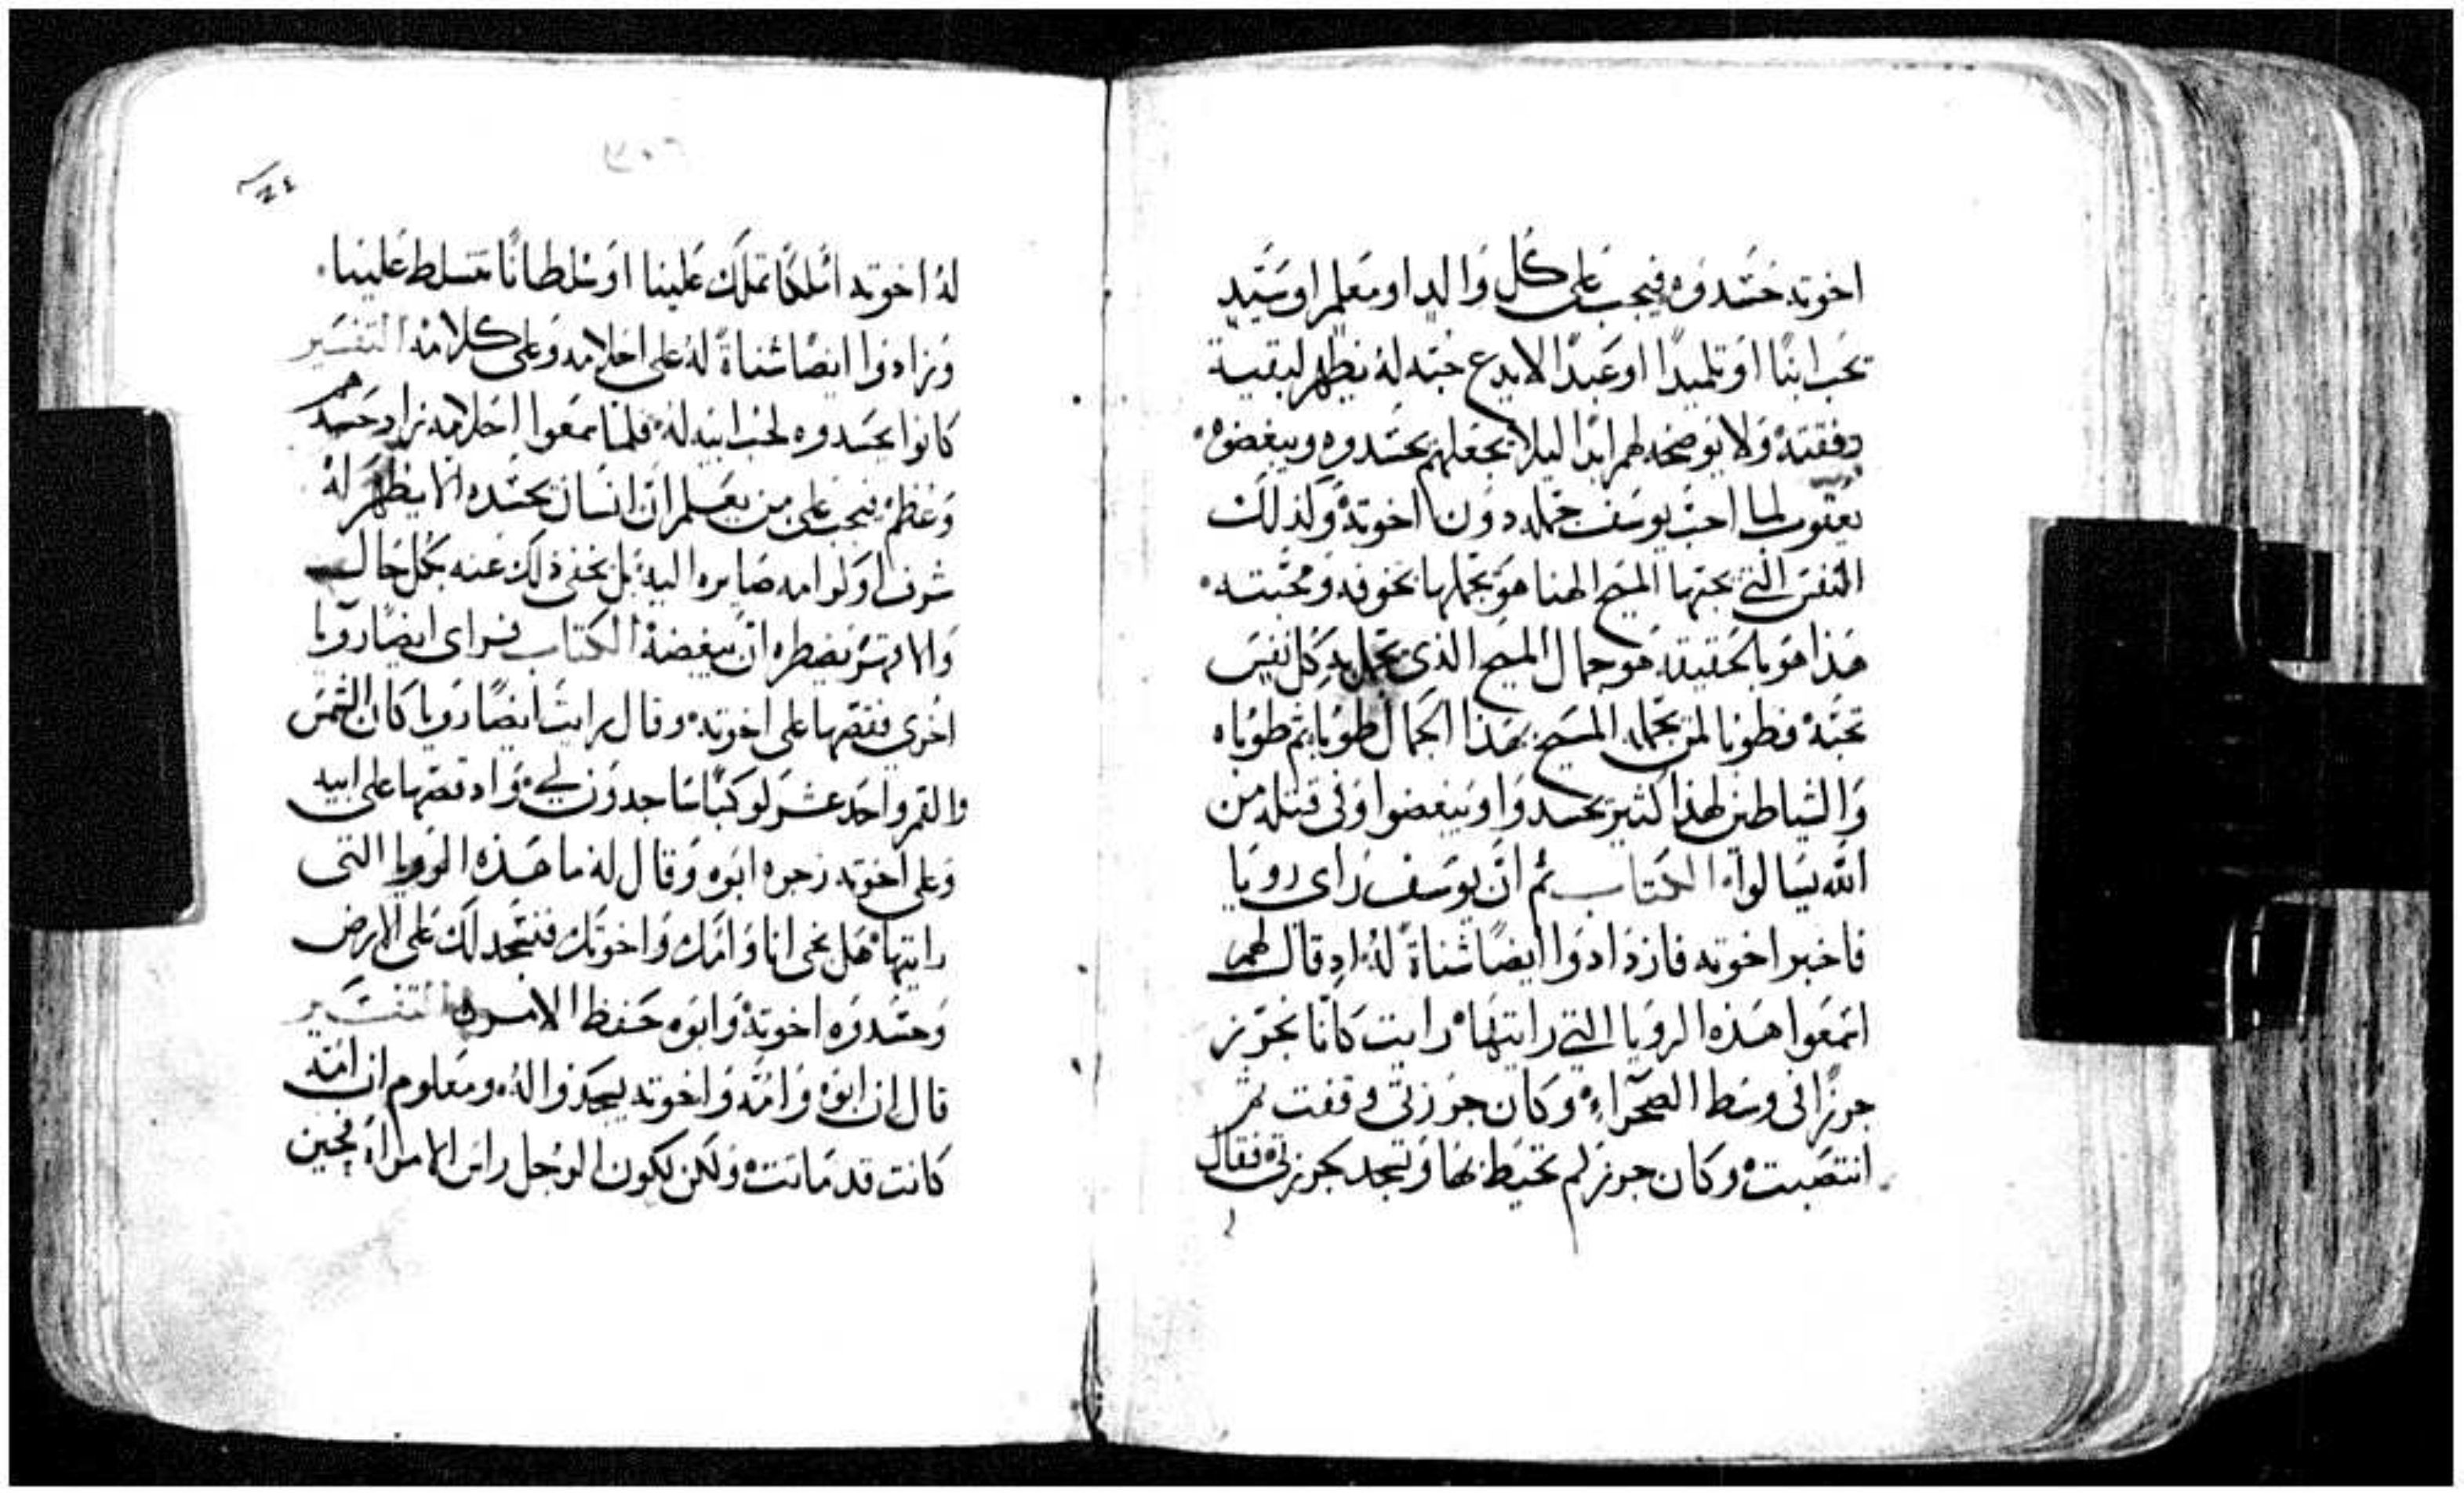 اخوته حَسَدوه فيجب على كل وَالد او مَعلم او سَيّد
يحَب ابنًا او تلميدًا او عَبدًا الا يدع حبّه له يظهر لبقية
رفقته ولا يوضحه لهم ابدًا ليلا يجعلهم يحسَدوه ويبغضوه
يعقوب لما احبّ يوسَف جمله دون اخوته وكذلك
النفسَ التي يحبّها المسَيح الهنا هو يجملها بخوفه ومحبّته
هَذا هوَ بالحقيقة هو جمال المسيح الذي تجمل به كل نفسَ
تحبّه فطوبا لمن يجمله المسَيح بهَذا الجمال طوبا ثم طوباه
وَالشياطين لهذا كثير يحسَدوا ويبغضوا وفي قتله من
الله يسَالوا الكتاب ثم انّ يوسَف رَاى رويا
فاخبر اخوته فازدادوا ايضًا شناةً له اد قال لهم
اسمَعوا هَذه الرويا التي رايتهَا رايت كانا نحوّز
جرزًا في وسَط الصحَراء وكان جرزتي وقفت ثم
انتصَبت وكان جرزكم تحيَط بهَا وتسَجد لجرزتي فقال
٢٥٧
٢٤
لهُ اخوته املكًا تملَك عَلينا اوسُلطانًا تتسلط عَلينا
وَزادوا ايضًا شناةً لهُ على احَلامه وَعلى كلامه التفسَير
كانوا يحسَدوه لحب ابيه له فلما سمَعوا احَلامه زاد حَسَدهم
وَعَظم فيجب على من يعَلم انّ انسَان يحسَده الا يظهَر لهُ
شرف او كرامه صَايره اليه بل يخفي ذلك عَنه بكل حَال
وَالا فهَو يضطره ان يبغضه الكتاب فراى ايضًا رويا
اخرى فقصّها على اخوته وقال رايت ايضًا رَويا كان الشمسَ
والقمر واحَد عشر كوكبًا سَاجدون لي وَاد قصّها على ابيه
وَعلى اخوته زجره ابوه وَقال له ما هَذه الرويا التى
رايتها هَل نجي انا وَامَك وَاخوتك فنسَجد لك عَلى الارض
وَحسَدوه اخوته وَابوه حَفظ الامر التفسَير
قال ان ابوه وَامَه وَاخوته يسجدوا له ومعلوم ان امّه
كانت قد مَاتت وَلكن لكون الرَجل راس الامراة فحين